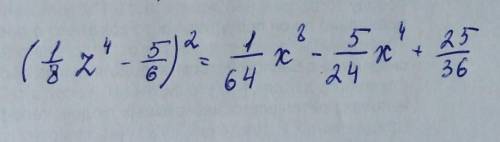 (1/8 z⁴ - 5/6)² = 1/64 x⁸ - 5/24 x⁴ + 25/36